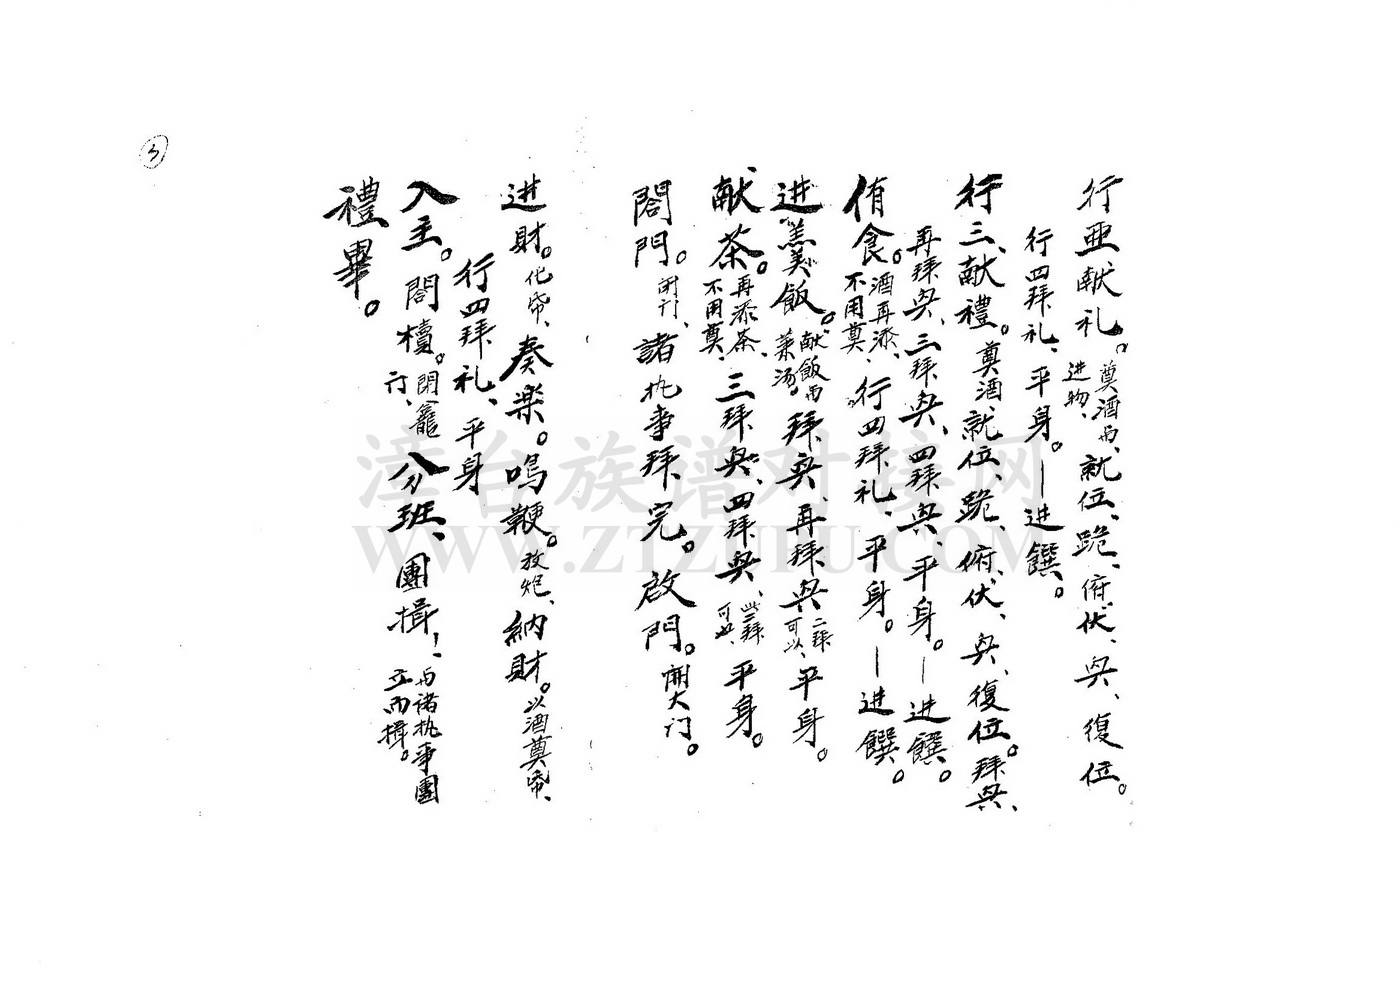 行亜献礼。奠酒两进物、就位、跪、俯伏、兴、復位。
行四拜礼、平身。—进饌。
行三献禮。奠酒就位、跪、俯、伏、兴、復位。拜兴、
再拜兴、三拜兴、四拜兴、平身。—进饌。
侑食。酒再添、不用奠、行四拜礼、平身。—进饌。
进羹飯。献飯两菜汤。拜兴、再拜兴、二拜可以、平身。
献茶。再添茶、不用奠、三拜兴、四拜兴、此三拜可也、平身。
閤門。闭门、諸执事拜完。啟門。開大门。
进財。化帛、奏楽。鳴鞭。放炮、納財。以酒奠帛、
行四拜礼、平身
入主。閤櫝。閉龕门、分班、團揖！、与诸执事團立而揖。
禮畢。
3
漳台族谱对接网
WWW.ZTZUPU.COM